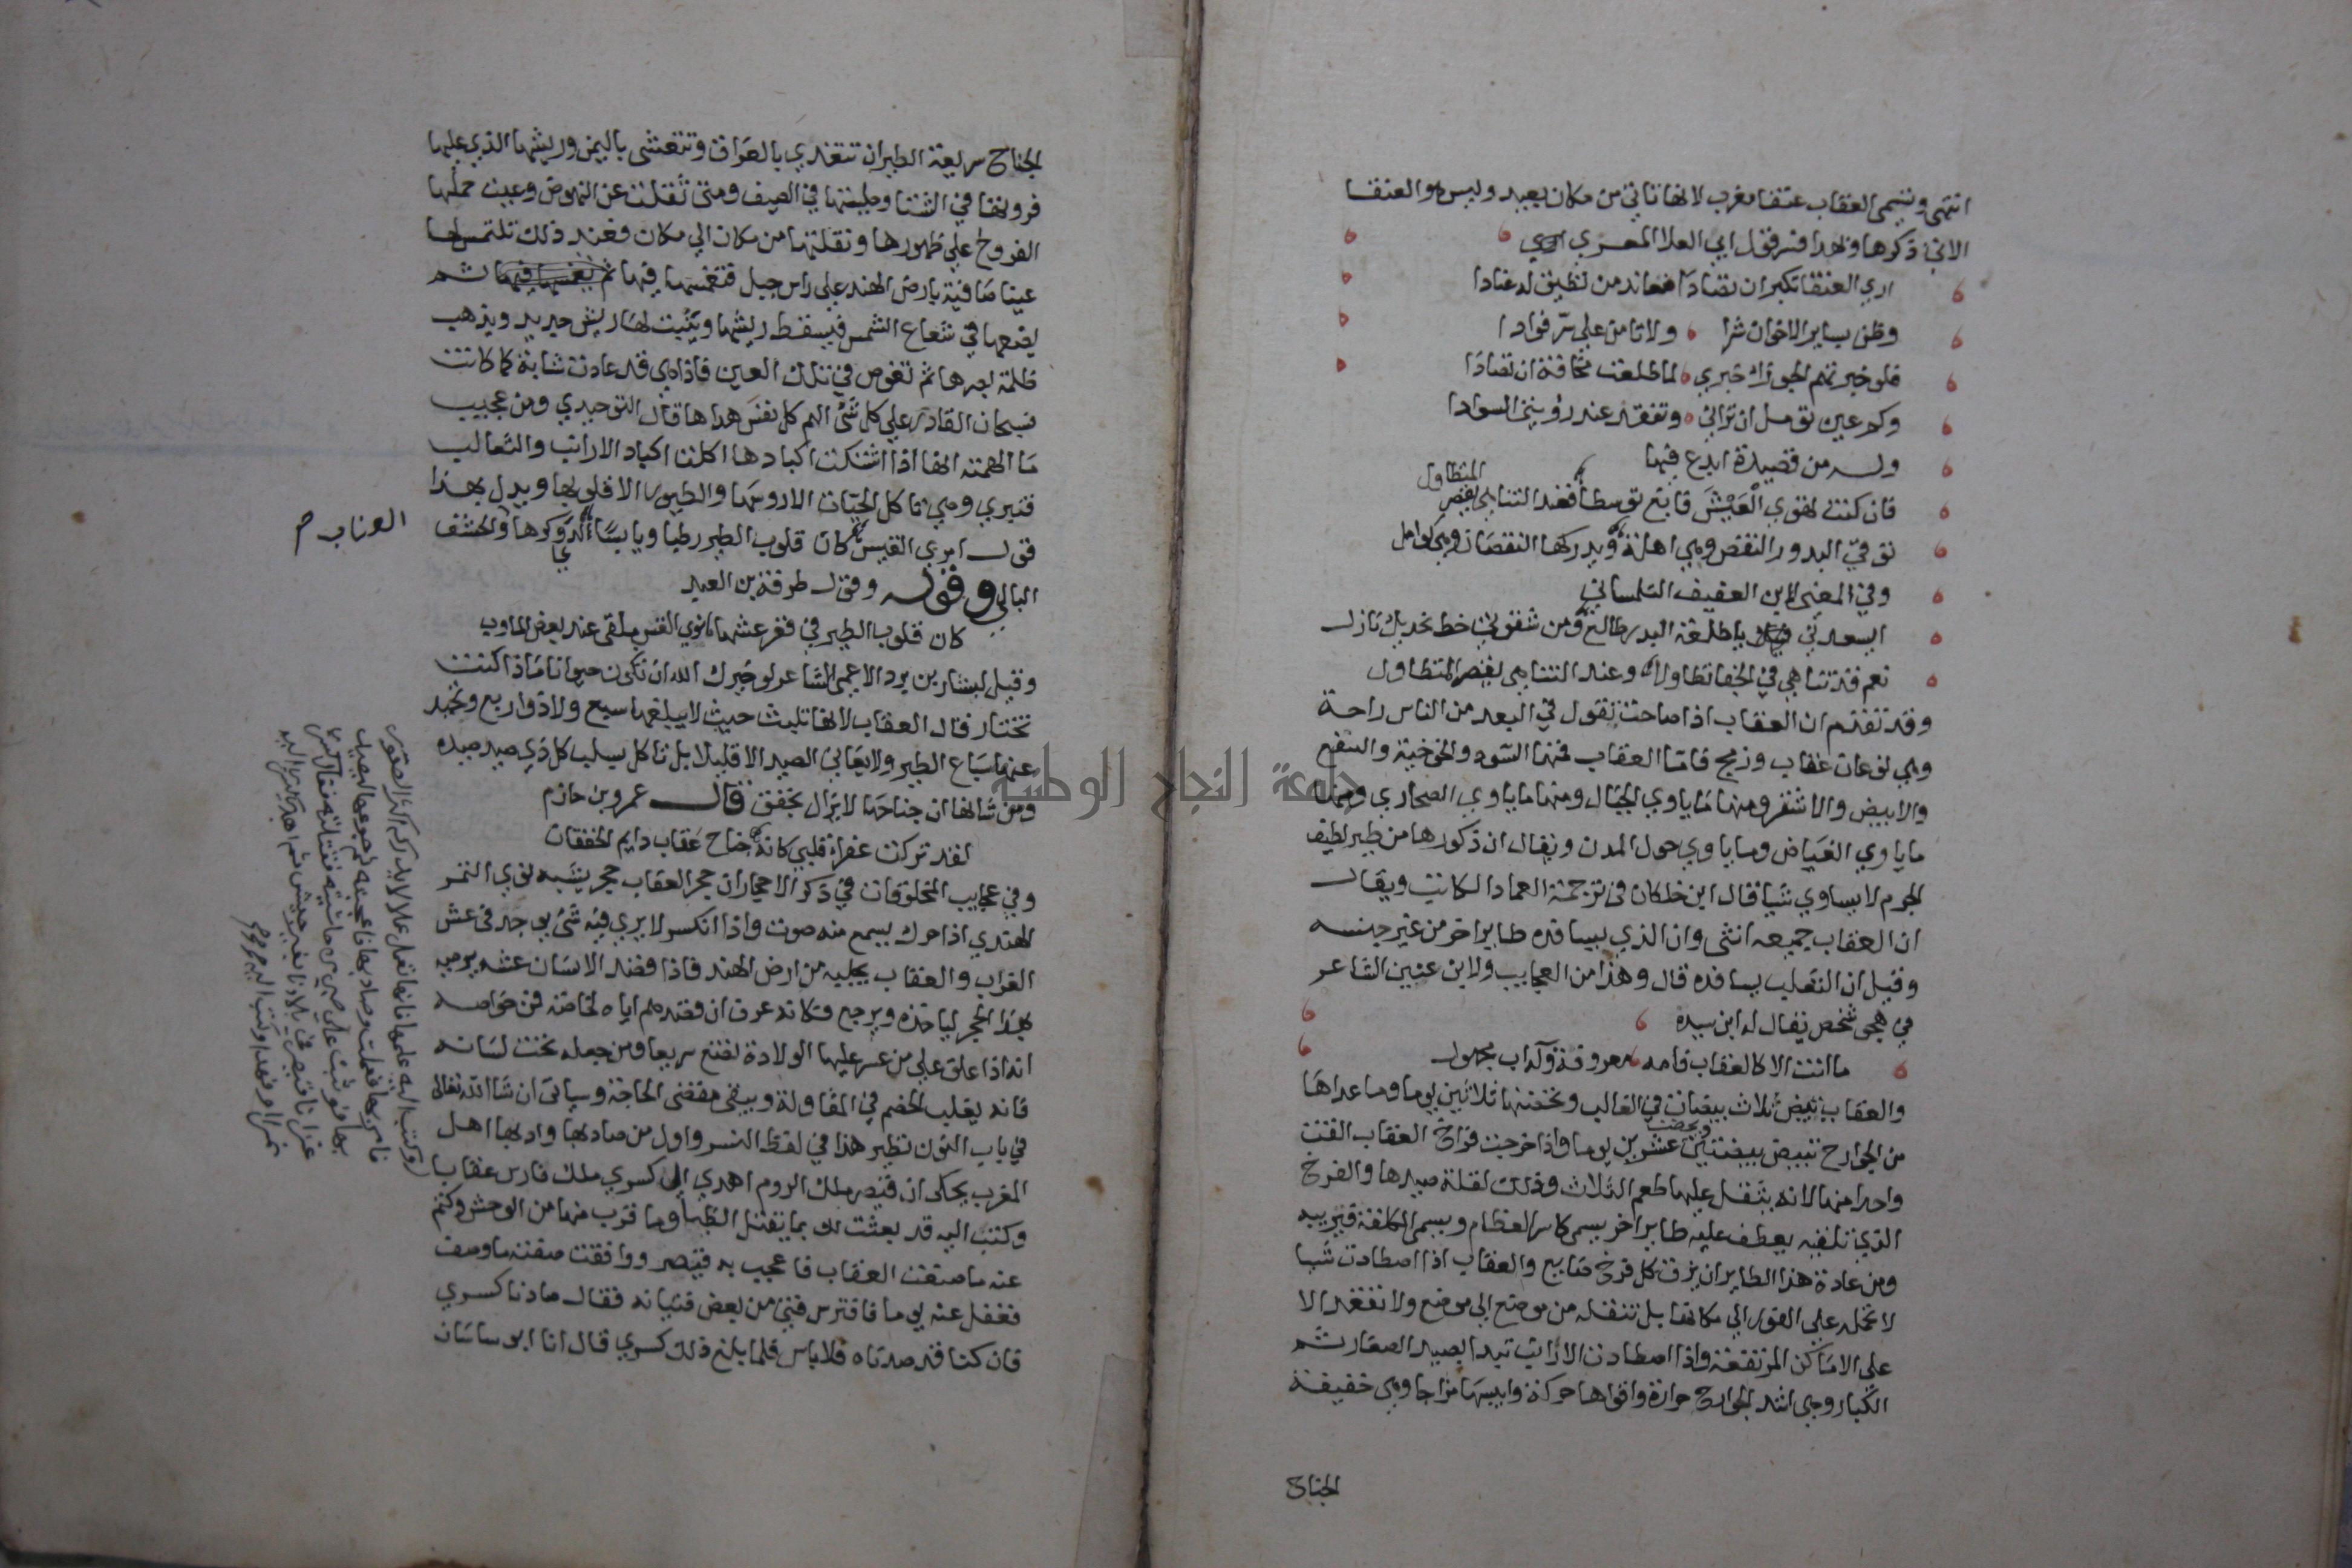 انتهى وتسمى العقاب عنقا مغرب لانها تاتي من مكان بعيد وليس هو العنقا
الاتي ذكرها وبهذا فسر قول ابي العلا المعري
اري العنقا تكبر ان تصادا فعاند من تطيق له عنادا
وظن بساير الاخوان شرا ولا تامن علي سر فوادا
فلو خبرتهم الجوزاء خبري لما طلعت مخافة ان تصادا
وكم عين تومل ان تراني وتفقد عند رؤيتي السوادا
وله من قصيدة ابدع فيها
فان كنت تهوي العيش فابغ توسطا فعند التناهي يقصر المتطاول
توقي البدور النقص وهي اهلة ويدركها النقصان وهي كوامل
وفي المعنى لابن العفيف التلمساني
ايسعدني يا طلعة البدر طالع ومن شقوتي خط بخديك نازل
نعم قد تناهي في الجفا تطاولا وعند التناهي يقصر المتطاول
وقد تقدم ان العقاب اذا صاحت تقول في البعد من الناس راحة
وهي نوعان عقاب وزمج فاما العقاب فمنها السود والخوخية والسفع
والابيض والاشقر ومنها ما ياوي الجبال ومنها ما ياوي الصحاري ومنها
ما ياوي الغياض وما ياوي حول المدن ويقال ان ذكورها من طير لطيف
الجرم لا يساوي شيا قال ابن خلكان في ترجمة العماد الكاتب ويقال
ان العقاب جميعه انثى وان الذي يسافده طاير اخر من غير جنسه
وقيل ان الثعلب يسافده قال وهذا من العجايب ولابن عنين الشاعر
في هجو شخص يقال له ابن سيده
ما انت الا كالعقاب فامه معروفة وله اب مجهول
والعقاب تبيض ثلاث بيضات في الغالب وتحضنها ثلاثين يوما وما عداها
من الجوارح تبيض بيضتين وتحضن عشرين يوما واذا خرجت فراخ العقاب القت
واحدا منها لانه يثقل عليها طعم الثلاث وذلك لقلة صبرها والفرخ
الذي تلقيه يعطف عليه طاير اخر يسمى كاسر العظام ويسمى المكلفة فيربيه
ومن عادة هذا الطاير ان يزق كل فرخ ضايع والعقاب اذا اصطادت شيا
لا تحمله على الفور الي مكانها بل تنقله من موضع الى موضع ولا تقعد الا
على الاماكن المرتفعة واذا اصطادت الارانب تبدا بصيد الصغار ثم
الكبار وهي اشد الجوارح حرارة واقواها حركة وايبسها مزاجا وهي خفيفة
الجناح
الجناح سريعة الطيران تتغدي بالعراق وتتعشى باليمن وريشها الذي عليها
فروتها في الشتا وحليتها في الصيف ومتى ثقلت عن النهوض وعميت حملتها
الفروخ علي ظهورها ونقلتها من مكان الي مكان فعند ذلك تلتمس لها
عينا صافية بارض الهند على راس جبل فتغمسها فيها ثم
يضعها في شعاع الشمس فيسقط ريشها وينبت لها ريش جديد ويذهب
ظلمة بصرها ثم تغوص في تلك العين فاذا هي قد عادت شابة كما كانت
فسبحان القادر علي كل شئ الهم كل نفس هداها قال التوحيدي ومن عجيب
ما الهمته انها اذا اشتكت اكبادها اكلت اكباد الارانب والثعالب
فتبري وهي تاكل الحيات الا روسها والطيور الا قلوبها ويدل بهذا
قول امري القيس كان قلوب الطير رطبا ويابسا لدي وكرها والحشف
العناب
البالي وقوله وقول طرفة بن العبد
كان قلوب الطير في قعر عشها نوي القسب ملقى عند بعض المادب
وقيل لبشار بن برد الاعمى الشاعر لو خيرك الله ان تكون حيوانا ماذا كنت
تختار قال العقاب لانها تلبث حيث لا يبلغها سبع ولا ذو اربع وتحيد
عنها سباع الطير ولا تعاني الصيد الا قليلا بل تاكل بسلب كل ذي صيد صيده
ومن شانها ان جناحها لا يزال يخفق قال عمرو بن حازم
لقد تركت عفراء قلبي كانه جناح عقاب دايم الخفقان
وفي عجايب المخلوقات في ذكر الاحجار ان حجر العقاب حجر يشبه نوي التمر
الهندي اذا حرك يسمع منه صوت واذا انكسر لا يري فيه شئ يوجد في عش
العقاب والعقاب يجلبه من ارض الهند فاذا قصد الانسان عشه يرمي
بهذا الحجر لياخذه ويرجع فكانه عرف ان قصدهم اياه لخاصته فمن خواصه
انه اذا علق علي من عسر عليها الولادة تضع سريعا ومن جعله تحت لسانه
فانه يغلب الخصم في المقاولة ويبقي مقضى الحاجة وسياتي ان شا الله تعالى
في باب النون نظير هذا في لفظ النسر واول من صاد بها وادبها اهل
المغرب يحكى ان قيصر ملك الروم اهدي الي كسري ملك فارس عقابا
وكتب اليه قد بعثت لك بما يقتل الظبا وما قرب منها من الوحش وكتم
عنه ما صنعت العقاب فاعجب به قيصر ووافقت صفته ما وصف
فغفل عنه يوما فافترس فتى من بعض فتيانه فقال صادنا كسري
فان كنا قد صدناه فلا باس فلما بلغ ذلك كسري قال انا ابو ساسان
جامعة النجاح الوطنية